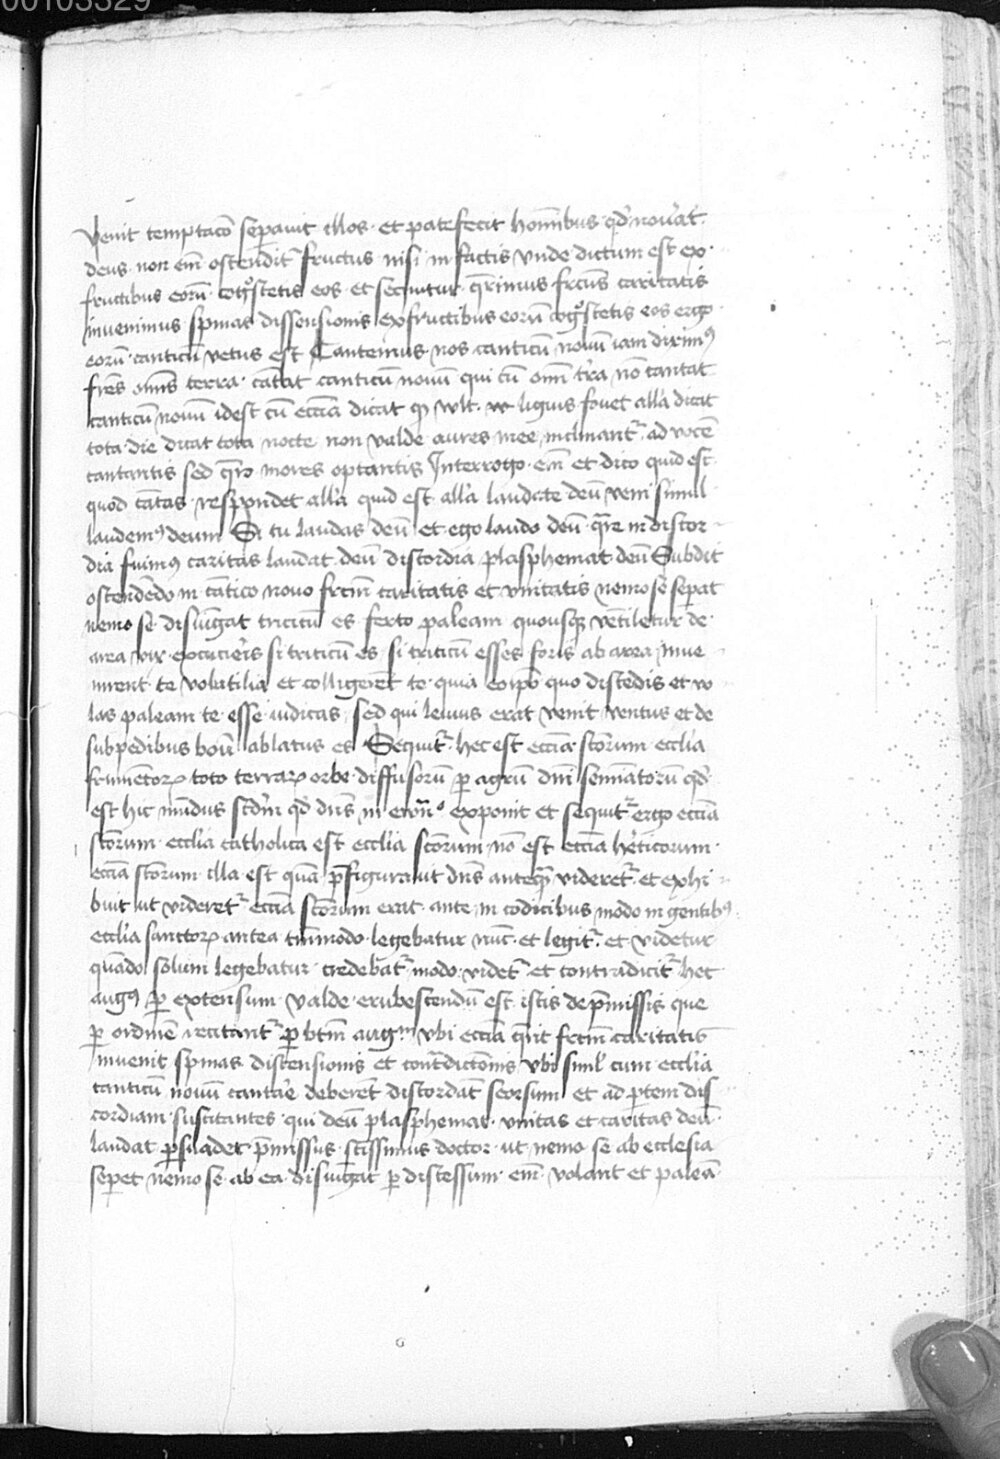 00103329
Venit temptacō sepauit illos · et patefecit hominibus qd nouˀat
deus · non em̄ ostendit fructus nisi in factis vnde dictum est ex ·
fructibus eorū · cogͦscetis eos · et sequitur · querimus frcūs caritatis
inuenimus spinas dissensionis ex fructibus eorū cogͦscetis eos ergo
eorū · canticū vetus est Cantemus nos canticū nouū iam diximꝰ
frēs om̄is terra · cātat canticū nouū qui cū om̄i trˀa nō cantat
canticū nouū idest cū eccīa dicat qͥ vlt · vt liguis fouet allˀa dicat
tota die dicat tota nocte non valde aures mee inclinantˀ ad vocē
cantantis sed qrō mores optantis Interrogo · em̄ et dico quid est
quod cātas · respondet allˀa quid est allˀa laudate deū veni simul
laudemꝰ deum Si tu laudas deū et ego laudo deū · qre in discor
dia fuimꝰ caritas laudat deū discordia plasphemat deū Subdit
ostendēdo in cātico nouo frcm̄ caritatis et vnitatis nemo se sepat
nemo se disiūgat triticū es ferto paleam quousqꝫ vētiletur de ·
area vix excucieris si triticū es · si triticū esses foris ab area inue
nirent te volatilia et colligerēt te · quia eoipō quo discedis et vo
las paleam te esse iudicas · sed qui leuius erat venit ventus et de
sub pedibus boū ablatus es Sequitˀ · hec est eccīa · sc̄torum ecclˀia
frumētoꝝ toto terraꝝ orbe diffusorū ꝑ agrū dnī seminatorū qd
est hic mūdus scdm̄ qd dn̄s in euan̄ᵒ exponit et sequitˀ ergo eccīa
sc̄torum · ecclˀia catholica est ecclˀia sc̄torum nō est eccīa hˀeticorum ·
eccīa sc̄torum illa est quā p̄figurauit dn̄s anteqͣ videretˀ et exhi
buit ut videretˀ eccīa sc̄torum erat ante in codicibus modo in gentibꝰ
ecclˀia sanctoꝝ antea tm̄modo legebatur nūc · et legitˀ et videtur
quādo solum legebatur credebatˀ modo videtˀ et contradicitˀ hec
augꝰ ꝑ extensum · Valde erubescendū est istis de p̄missis que
ꝑ ordinē recitantˀ ꝑ btm̄ augᵐ vbi eccīa q̄rit frcm̄ caritatis
inuenit spinas discensionis et cont̄dictōnis vbi simlˀ cum ecclˀia
canticū nouū cantare deberēt discordāt seorsum et ad ꝑtem dis
cordiam suscitantes · qui deū plasphemat vnitas et caritas deū
laudat ꝑsuadet p̄missus sctissimus doctor · ut nemo se ab ecclesia
sepet nemo se ab ea disiūgat ꝑ discessum em̄ volant et paleā